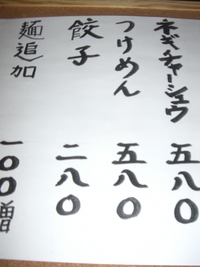 ネギチャーシュウ 五八〇
つけめん 五八〇
餃子 二八〇
麺追加 一〇〇増